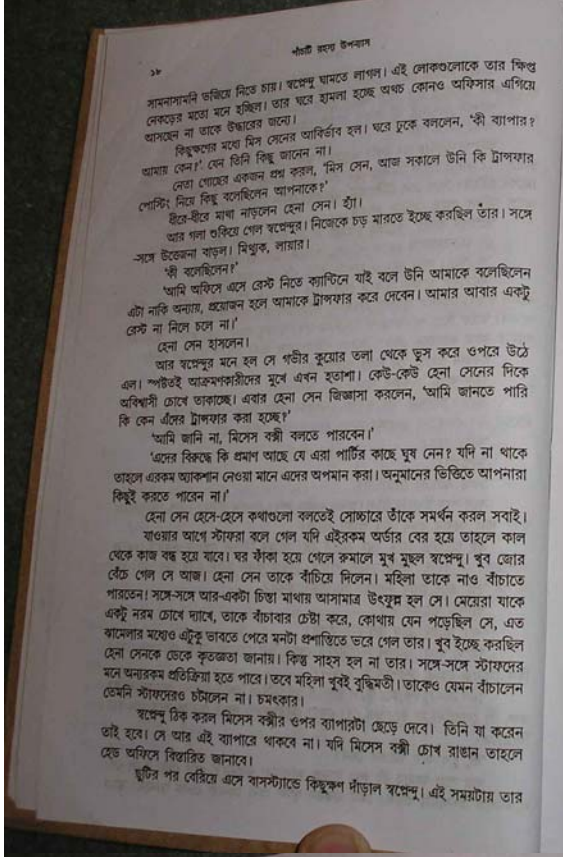 পাঁচটি রহস্য উপন্যাস
১৮
সামনাসামনি ভজিয়ে নিতে চায়। স্বপ্নেন্দু ঘামতে লাগল। এই লোকগুলোকে তার ক্ষিপ্ত
নেকড়ের মতো মনে হচ্ছিল। তার ঘরে হামলা হচ্ছে অথচ কোনও অফিসার এগিয়ে
আসছেন না তাকে উদ্ধারের জন্যে।
কিছুক্ষণের মধ্যে মিস সেনের আবির্ভাব হল। ঘরে ঢুকে বললেন, 'কী ব্যাপার?
আমায় কেন?' যেন তিনি কিছু জানেন না।
নেতা গোছের একজন প্রশ্ন করল, 'মিস সেন, আজ সকালে উনি কি ট্রান্সফার
পোস্টিং নিয়ে কিছু বলেছিলেন আপনাকে?'
ধীরে-ধীরে মাথা নাড়লেন হেনা সেন। হ্যাঁ।
আর গলা শুকিয়ে গেল স্বপ্নেন্দুর। নিজেকে চড় মারতে ইচ্ছে করছিল তার। সঙ্গে
-সঙ্গে উত্তেজনা বাড়ল। মিথ্যুক, লায়ার।
'কী বলেছিলেন?'
'আমি অফিসে এসে রেস্ট নিতে ক্যান্টিনে যাই বলে উনি আমাকে বলেছিলেন
এটা নাকি অন্যায়, প্রয়োজন হলে আমাকে ট্রান্সফার করে দেবেন। আমার আবার একটু
রেস্ট না নিলে চলে না।'
হেনা সেন হাসলেন।
আর স্বপ্নেন্দুর মনে হল সে গভীর কুয়োর তলা থেকে ভুস করে ওপরে উঠে
এল। স্পষ্টতই আক্রমণকারীদের মুখে এখন হতাশা। কেউ-কেউ হেনা সেনের দিকে
অবিশ্বাসী চোখে তাকাচ্ছে। এবার হেনা সেন জিজ্ঞাসা করলেন, 'আমি জানতে পারি
কি কেন এঁদের ট্রান্সফার করা হচ্ছে?'
'আমি জানি না, মিসেস বক্সী বলতে পারবেন।'
'এদের বিরুদ্ধে কি প্রমাণ আছে যে এরা পার্টির কাছে ঘুষ নেন? যদি না থাকে
তাহলে এরকম অ্যাকশান নেওয়া মানে এদের অপমান করা। অনুমানের ভিত্তিতে আপনারা
কিছুই করতে পারেন না।'
হেনা সেন হেসে-হেসে কথাগুলো বলতেই সোচ্চারে তাঁকে সমর্থন করল সবাই।
যাওয়ার আগে স্টাফরা বলে গেল যদি এইরকম অর্ডার বের হয়ে তাহলে কাল
থেকে কাজ বন্ধ হয়ে যাবে। ঘর ফাঁকা হয়ে গেলে রুমালে মুখ মুছল স্বপ্নেন্দু। খুব জোর
বেঁচে গেল সে আজ। হেনা সেন তাকে বাঁচিয়ে দিলেন। মহিলা তাকে নাও বাঁচাতে
পারতেন! সঙ্গে-সঙ্গে আর-একটা চিন্তা মাথায় আসামাত্র উৎফুল্ল হল সে। মেয়েরা যাকে
একটু নরম চোখে দ্যাখে, তাকে বাঁচাবার চেষ্টা করে, কোথায় যেন পড়েছিল সে, এত
ঝামেলার মধ্যেও এটুকু ভাবতে পেরে মনটা প্রশান্তিতে ভরে গেল তার। খুব ইচ্ছে করছিল
হেনা সেনকে ডেকে কৃতজ্ঞতা জানায়। কিন্তু সাহস হল না তার। সঙ্গে-সঙ্গে স্টাফদের
মনে অন্যরকম প্রতিক্রিয়া হতে পারে। তবে মহিলা খুবই বুদ্ধিমতী। তাকেও যেমন বাঁচালেন
তেমনি স্টাফদেরও চটালেন না। চমৎকার।
স্বপ্নেন্দু ঠিক করল মিসেস বক্সীর ওপর ব্যাপারটা ছেড়ে দেবে। তিনি যা করেন
তাই হবে। সে আর এই ব্যাপারে থাকবে না। যদি মিসেস বক্সী চোখ রাঙান তাহলে
হেড অফিসে বিস্তারিত জানাবে।
ছুটির পর বেরিয়ে এসে বাসস্ট্যান্ডে কিছুক্ষণ দাঁড়াল স্বপ্নেন্দু। এই সময়টায় তার